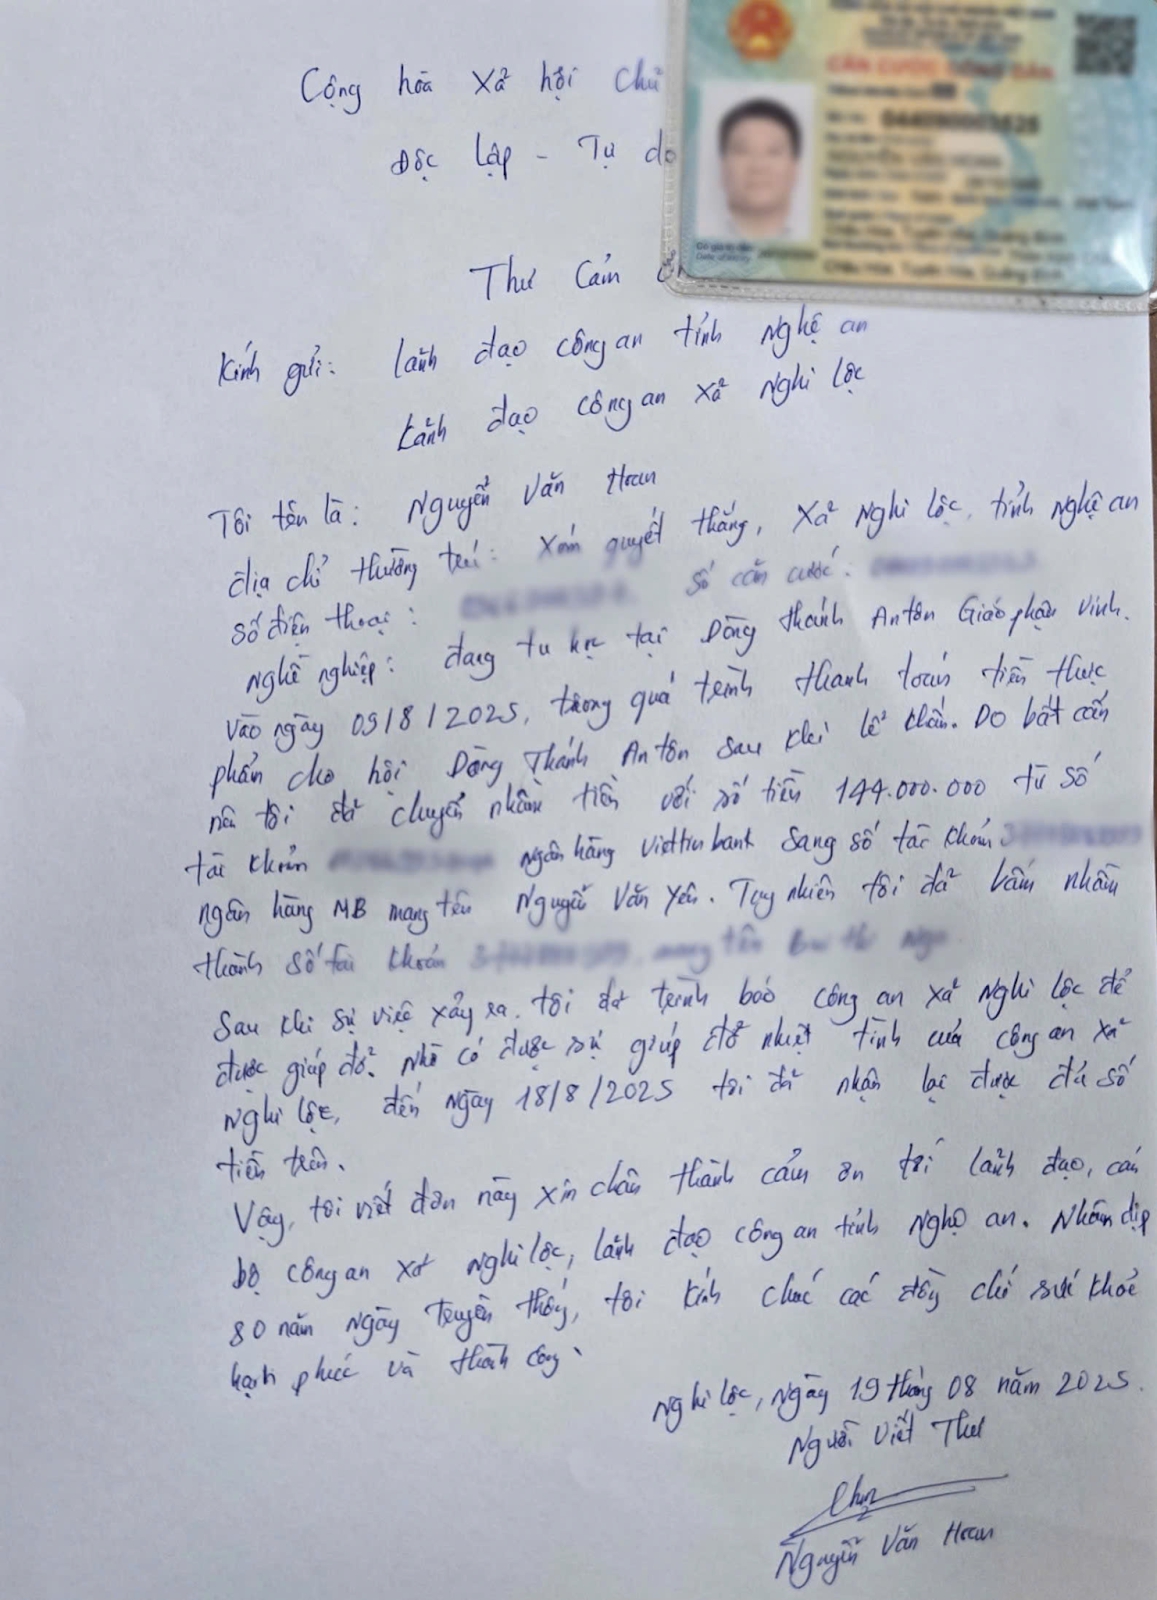 Cộng hòa Xã hội Chủ
Độc lập - Tự do
CĂN CƯỚC CÔNG DÂN
Thư Cảm
Kính gửi: lãnh đạo công an tỉnh Nghệ an
Lãnh đạo công an xã Nghi Lộc
Tôi tên là: Nguyễn Văn Hoan
địa chỉ thường trú: Xóm quyết thắng, Xã Nghi Lộc, tỉnh Nghệ an
Số điện thoại: Số căn cước:
Nghề nghiệp: đang tu học tại Dòng thánh Antôn Giáo phận Vinh.
Vào ngày 09/8/2025, trong quá trình thanh toán tiền thực
phẩm cho hội Dòng Thánh Antôn sau khi lễ khấn. Do bất cẩn
nên tôi đã chuyển nhầm tiền với số tiền 144.000.000 từ số
tài khoản ngân hàng Viettinbank sang số tài khoản
ngân hàng MB mang tên Nguyễn Văn Yên. Tuy nhiên tôi đã bấm nhầm
thành số tài khoản mang tên
Sau khi sự việc xảy ra. tôi đã trình báo công an xã Nghi Lộc để
được giúp đỡ. Nhờ có được sự giúp đỡ nhiệt tình của công an xã
Nghi Lộc, đến ngày 18/8/2025 tôi đã nhận lại được đủ số
tiền trên.
Vậy, tôi viết đơn này xin chân thành cảm ơn tới lãnh đạo, cán
bộ công an xã Nghi Lộc, lãnh đạo công an tỉnh Nghệ an. Nhân dịp
80 năm ngày truyền thống, tôi kính chúc các đồng chí sức khoẻ
hạnh phúc và thành công.
Nghi Lộc, ngày 19 tháng 08 năm 2025.
Người Viết Thư
Nguyễn Văn Hoan